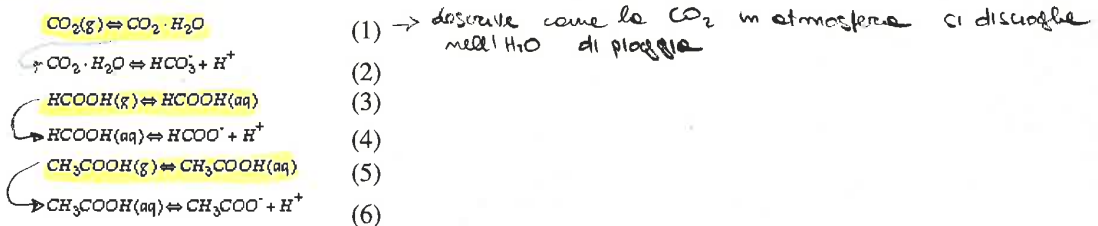 CO₂(g) ⇔ CO₂ · H₂O (1) → descrive come la CO₂ in atmosfera si discioglie
nell'H₂O di pioggia
CO₂ · H₂O ⇔ HCO₃⁻ + H⁺ (2)
HCOOH(g) ⇔ HCOOH(aq) (3)
HCOOH(aq) ⇔ HCOO⁻ + H⁺ (4)
CH₃COOH(g) ⇔ CH₃COOH(aq) (5)
CH₃COOH(aq) ⇔ CH₃COO⁻ + H⁺ (6)